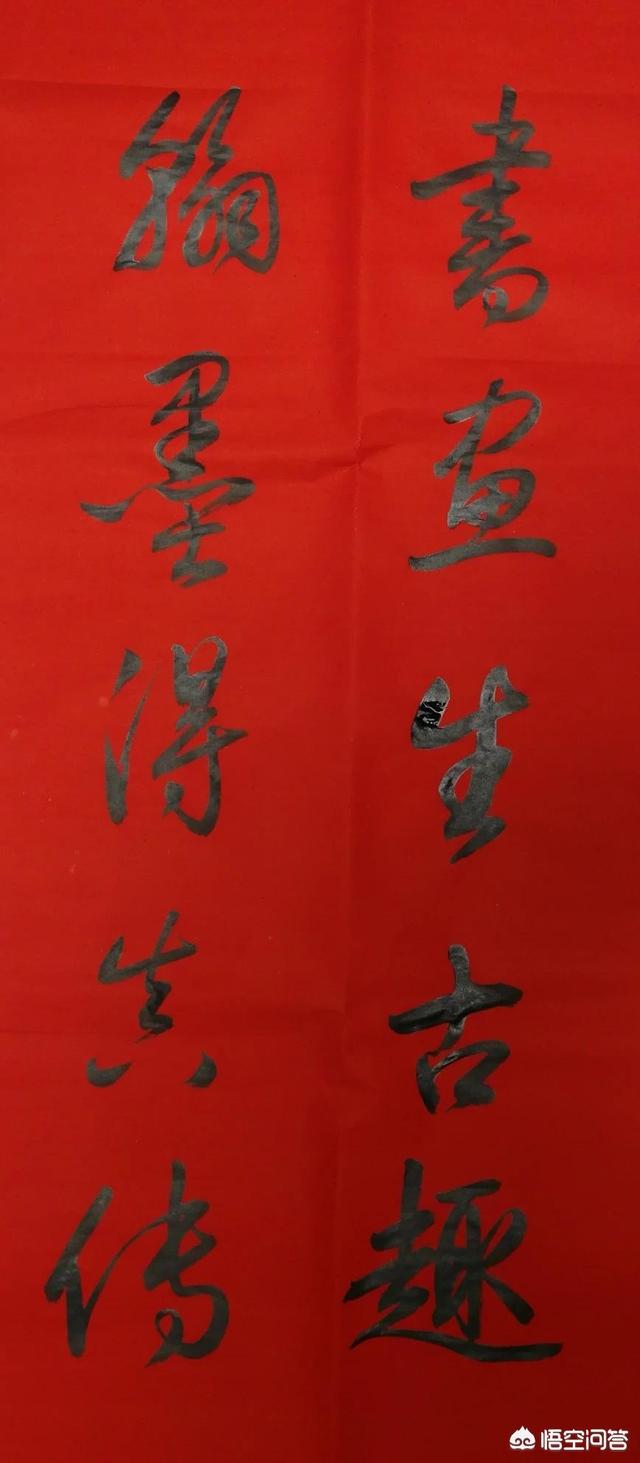 書畫生古趣
翰墨得真傳
悟空问答